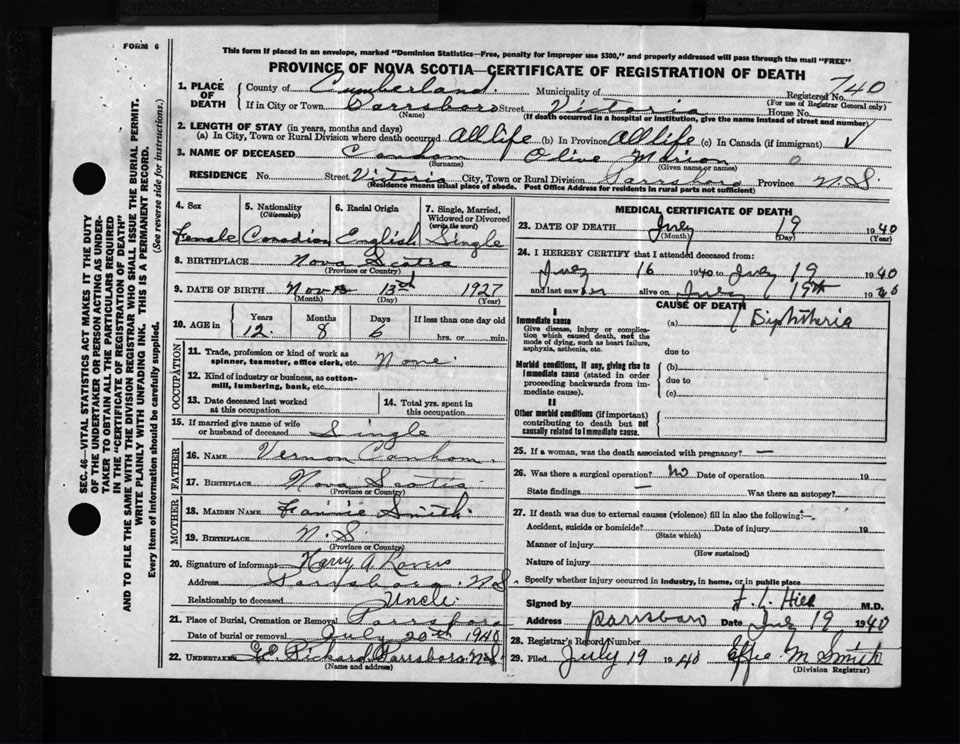 FORM 6
This form if placed in an envelope, marked "Dominion Statistics—Free, penalty for improper use $300," and properly addressed will pass through the mail "FREE"
PROVINCE OF NOVA SCOTIA—CERTIFICATE OF REGISTRATION OF DEATH
SEC. 46—VITAL STATISTICS ACT MAKES IT THE DUTY
OF THE UNDERTAKER OR PERSON ACTING AS UNDER-
TAKER TO OBTAIN ALL THE PARTICULARS REQUIRED
IN THE "CERTIFICATE OF REGISTRATION OF DEATH"
AND TO FILE THE SAME WITH THE DIVISION REGISTRAR WHO SHALL ISSUE THE BURIAL PERMIT.
WRITE PLAINLY WITH UNFADING INK. THIS IS A PERMANENT RECORD.
Every item of information should be carefully supplied. (See reverse side for instructions.)
1. PLACE OF DEATH County of Cumberland. Municipality of Registered No. 740
(For use of Registrar General only)
If in City or Town Parrsboro Street Victoria House No.
(Name) (If death occurred in a hospital or institution, give the name instead of street and number)
2. LENGTH OF STAY (in years, months and days)
(a) In City, Town or Rural Division where death occurred All life (b) In Province All life (c) In Canada (if immigrant)
3. NAME OF DECEASED Canham Olive Marion
(Surname) (Given name or names)
RESIDENCE No. Street Victoria City, Town or Rural Division Parrsboro Province N.S.
(Residence means usual place of abode. Post Office Address for residents in rural parts not sufficient)
4. Sex 5. Nationality (Citizenship) 6. Racial Origin 7. Single, Married, Widowed or Divorced (write the word)
female Canadian English Single
8. BIRTHPLACE Nova Scotia
(Province or Country)
9. DATE OF BIRTH Nov 13th 1927
(Month) (Day) (Year)
10. AGE in Years Months Days If less than one day old
12 8 6 hrs. or min.
OCCUPATION
11. Trade, profession or kind of work as spinner, teamster, office clerk, etc. None.
12. Kind of industry or business, as cotton-mill, lumbering, bank, etc.
13. Date deceased last worked at this occupation
14. Total yrs. spent in this occupation
15. If married give name of wife or husband of deceased Single
FATHER
16. NAME Vernon Canham.
17. BIRTHPLACE Nova Scotia
(Province or Country)
MOTHER
18. MAIDEN NAME Fannie Smith.
19. BIRTHPLACE N.S.
(Province or Country)
20. Signature of informant Harry A.
Address Parrsboro. N.S.
Relationship to deceased Uncle.
21. Place of Burial, Cremation or Removal Parrsboro
Date of burial or removal July 20th 1940
22. UNDERTAKER Rickard Parrsboro N.S.
(Name and address)
MEDICAL CERTIFICATE OF DEATH
23. DATE OF DEATH July 19 1940
(Month) (Day) (Year)
24. I HEREBY CERTIFY that I attended deceased from:
July 16 1940 to July 19 1940
and last saw her alive on July 19th 1940
CAUSE OF DEATH
I
Immediate cause (a) Diphtheria
Give disease, injury or complication which caused death, not the mode of dying, such as heart failure, asphyxia, asthenia, etc.
due to
Morbid conditions, if any, giving rise to immediate cause (stated in order proceeding backwards from immediate cause).
(b)
due to
(c)
II
Other morbid conditions (if important) contributing to death but not causally related to immediate cause.
25. If a woman, was the death associated with pregnancy? —
26. Was there a surgical operation? No Date of operation 19
State findings — Was there an autopsy?
27. If death was due to external causes (violence) fill in also the following:—
Accident, suicide or homicide? Date of injury 19
(State which)
Manner of injury
(How sustained)
Nature of injury
Specify whether injury occurred in industry, in home, or in public place
Signed by F. L. Hill M.D.
Address Parrsboro Date July 19 1940
28. Registrar's Record Number
29. Filed July 19 1940 Effie M Smith
(Division Registrar)